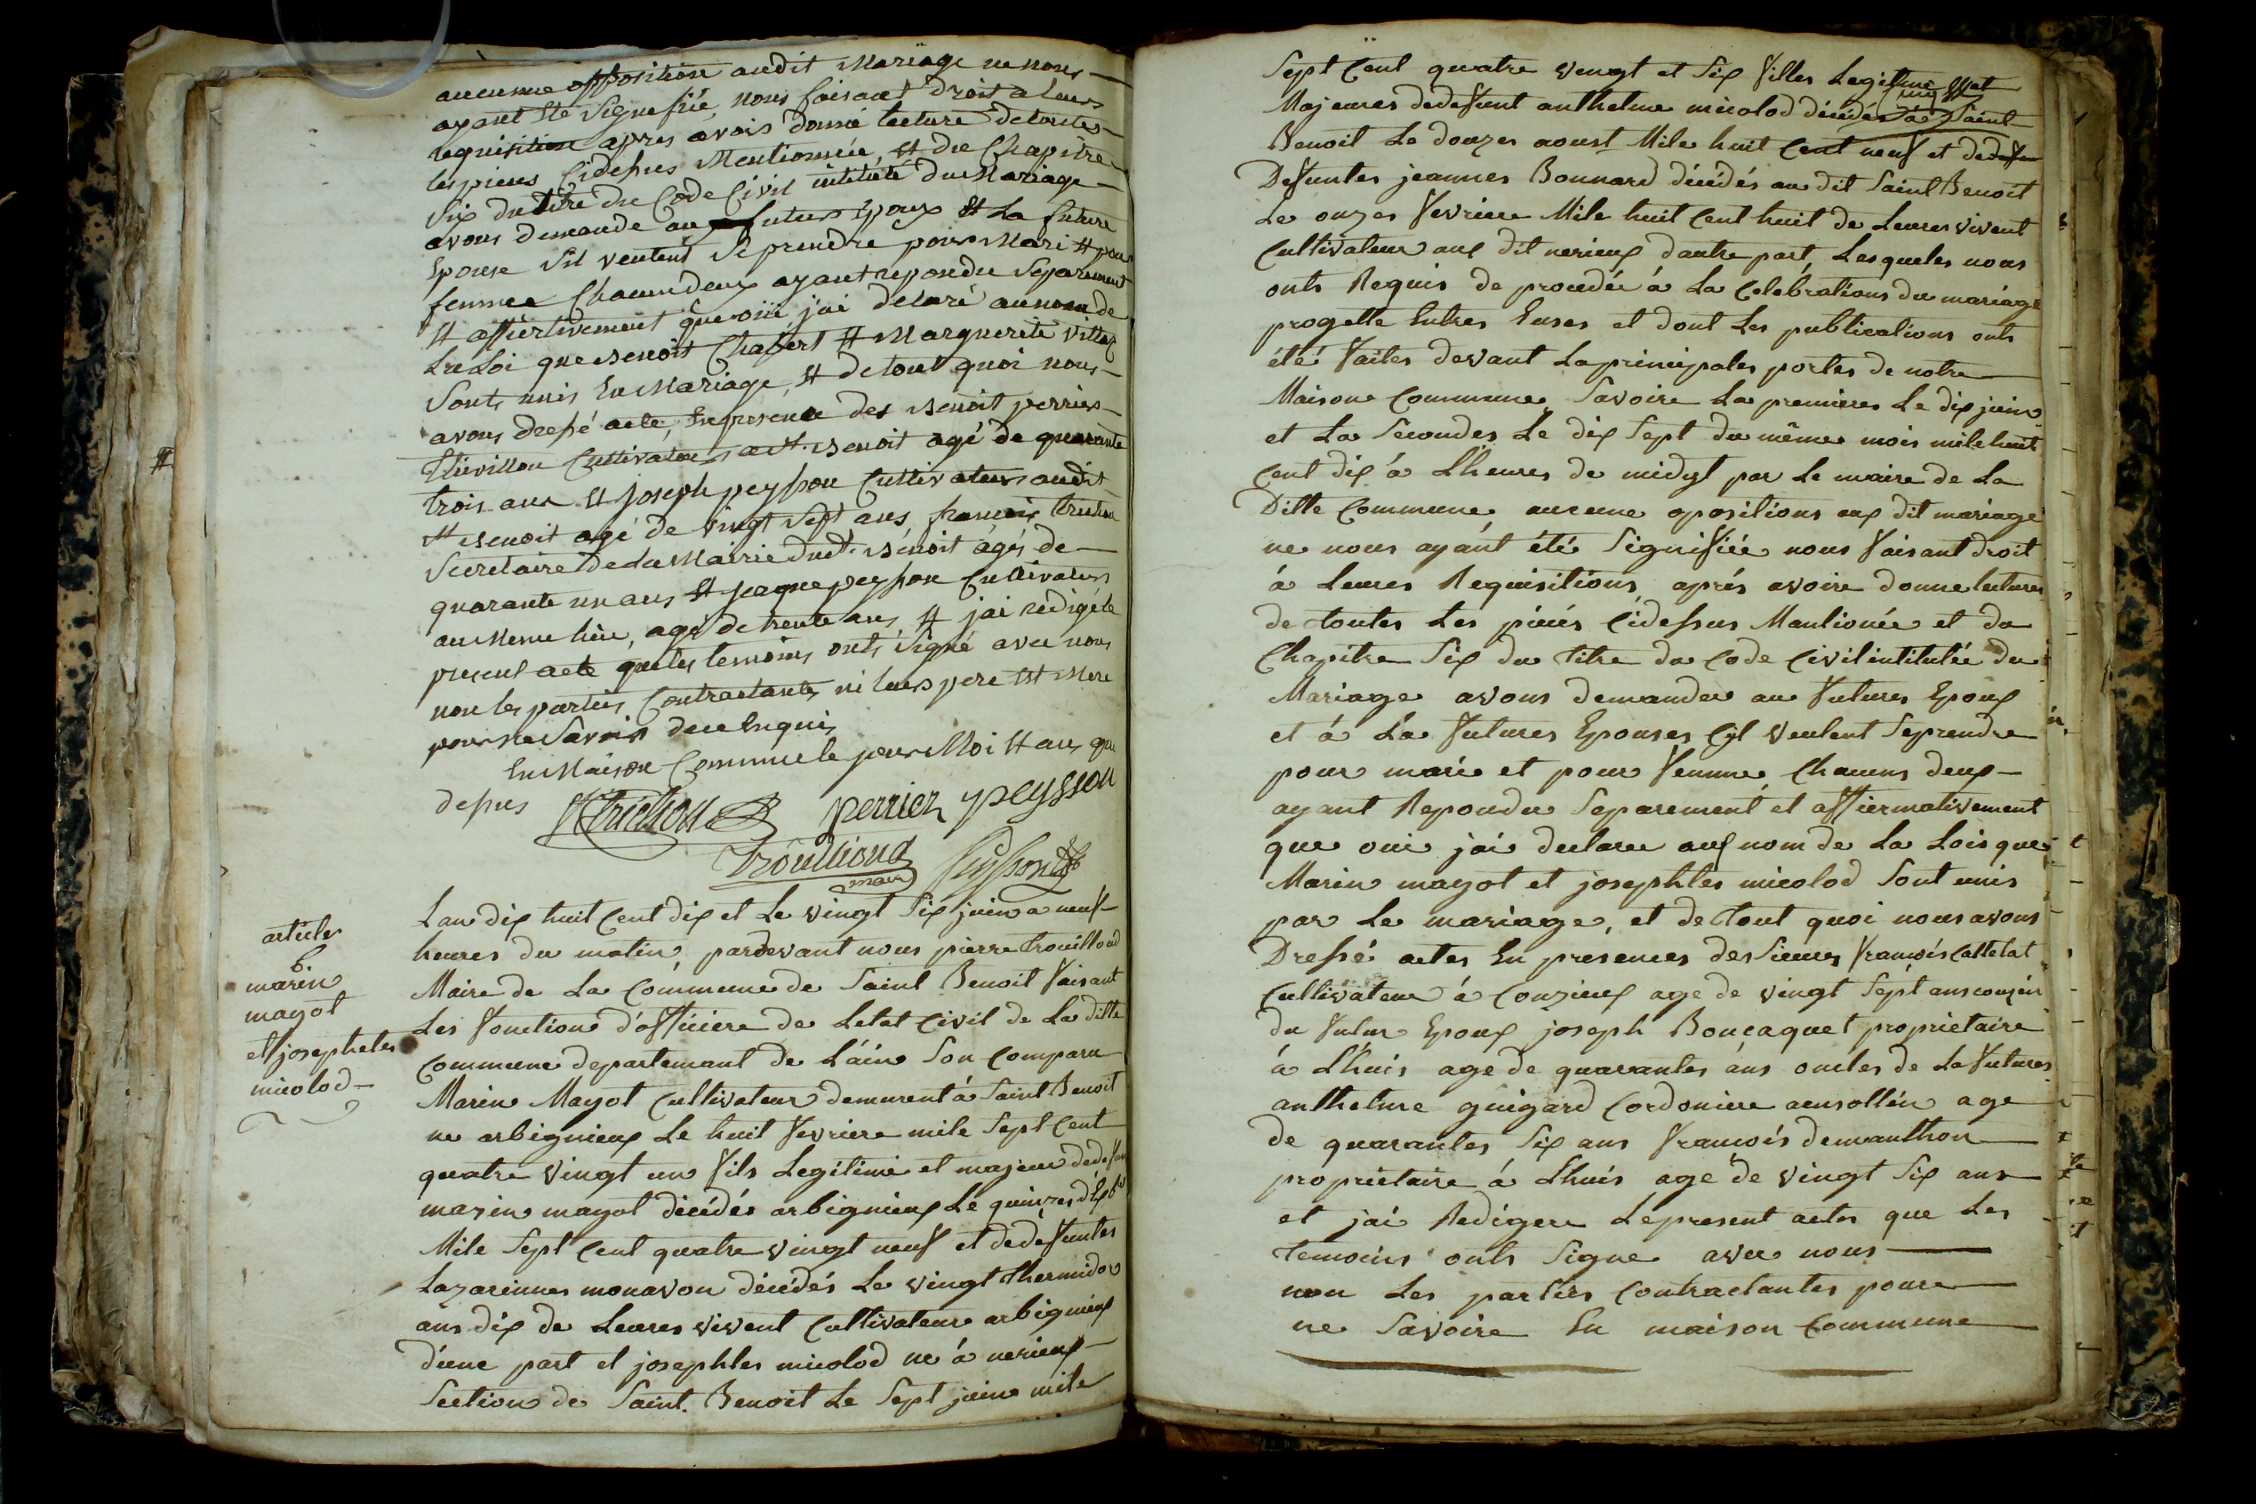 aucunne opposition audit Mariage ne nous
ayant Eté Signefiié, nous faisant Droit a leurs
requisition apres avois donné lecture detoutes
les pieces Cidessus Mentionnéé, Et du Chapitre
Six du titre du Code Civil intitulé du Mariage
avons demande au futurs Epoux Et La future
Epouse Sil veulent Se prendre pour Mari Et pour
femme Chacun deux ayant repondu Séparement
Et affiertivement que oüi j'ai declaré au nom de
La Loi que Benoit Chabert Et Marguerite
Sont unis En Mariage, Et de tout quoi nous
avons dressé acte, En presence des Benoit perrier
Cultivateur a St. Benoit agé de quarante
trois ans Et Joseph peysson Cultivateur audit
St Benoit agé de vingt Sept ans, francois trichon
Secretaire de la Mairie dud. Benoit agés de
quarante un ans Et jaque peysson Cultivateur
au Meme lieu, agé de trente ans, Et jai redigé le
present acte que les temoins onts Signé avec nous
non les parties Contractantes ni leurs pere Et Mere
pour ne Savoir de ce Enquis
En Maison Commune le jour Moi Et ans que
dessus trichon perrier peysson
trouilloud maire peysson
article
6.
marin
mayot
et josephtes
micolod
Lan dix huit Cent dix et Le vingt Six juin a neuf
heures du matin, pardevant nous pierre trouilloud
Maire de La Commune de Saint Benoit faisant
Les fonction d'officiere de Letat Civil de La ditte
Commune departemant de L'ain Son Comparu
Marin Mayot Cultivateur demurent à Saint Benoit
ne arbignieux Le huit fevriere mile Sept Cent
quatre vingt un fils Legitime et majeur dedefun
marin mayot décédés arbignieux Le quinzes dExbre
Mile Sept Cent quatre vingt neuf et dedefuntes
Lazarinnes monavon décédés Le vingt thermidor
ans dix de Leures vivent Cultivateur arbignieux
d'une part et josephtes micolod ne á nerieux
Section de Saint Benoit Le Sept juin mile
Sept Cent quatre vingt et Six filles Legitime et
Majeures dedefunt anthelme micolod décédés á Saint
Benoit Le douzes aoust Mile huit Cent neuf et dedefun
Defuntes jeannes Bonnard décédés au dit Saint Benoit
Le onzes fevriere Mile huit Cent huit de Leures vivent
Cultivateur aux dit nerieux dautre part, Lesqueles nous
onts Requis de procedée á La Celébrations du mariage
progette Entres Euses et dont Les publications onts
été faites devant La principales portes de notre
Maison Commune, Savoire La premieres Le dix juin
et La Secondes Le dix Sept du même mois mile huit
Cent dix á Lheures de midyt par Le maire de La
Ditte Commune aucune opositions aux dit mariage
ne nous ayant été Signifiiée nous faisant droit
á Leures Requisitions, aprés avoire donne lectures
de toutes Les piéces Cidessus Mantionée et du
Chapitre Six du titre du Code Civil intitulée du
Mariage avons demandee au futures Epoux
et á La futures Epouses Cyl veulent Seprendre
pour marie et pour femme, Chacuns deux
ayant Repondu Separement et affiermativement
que oui jai declaree aux nom de La Lois que
Marin mayot et josephtes micolod Sont unis
par Le mariage, et de tout quoi nous avons
Dressé actes En presences des Sieures francois Cattelat
Cultivateur á Conzieux age de vingt Sept ans couzin
du futur Epoux joseph Boucaquet proprietaire
á Lhuis age de quarantes ans oncles de La futures
anthelme guigard Cordoniere age
de quarantes Six ans francois demanthon
proprietaire á Lhuis age de vingt Six ans
et jai Redigere Le present actes que Les
temoins onts Signe avec nous
non Les parties Contractantes poure
ne Savoire En maison Commune